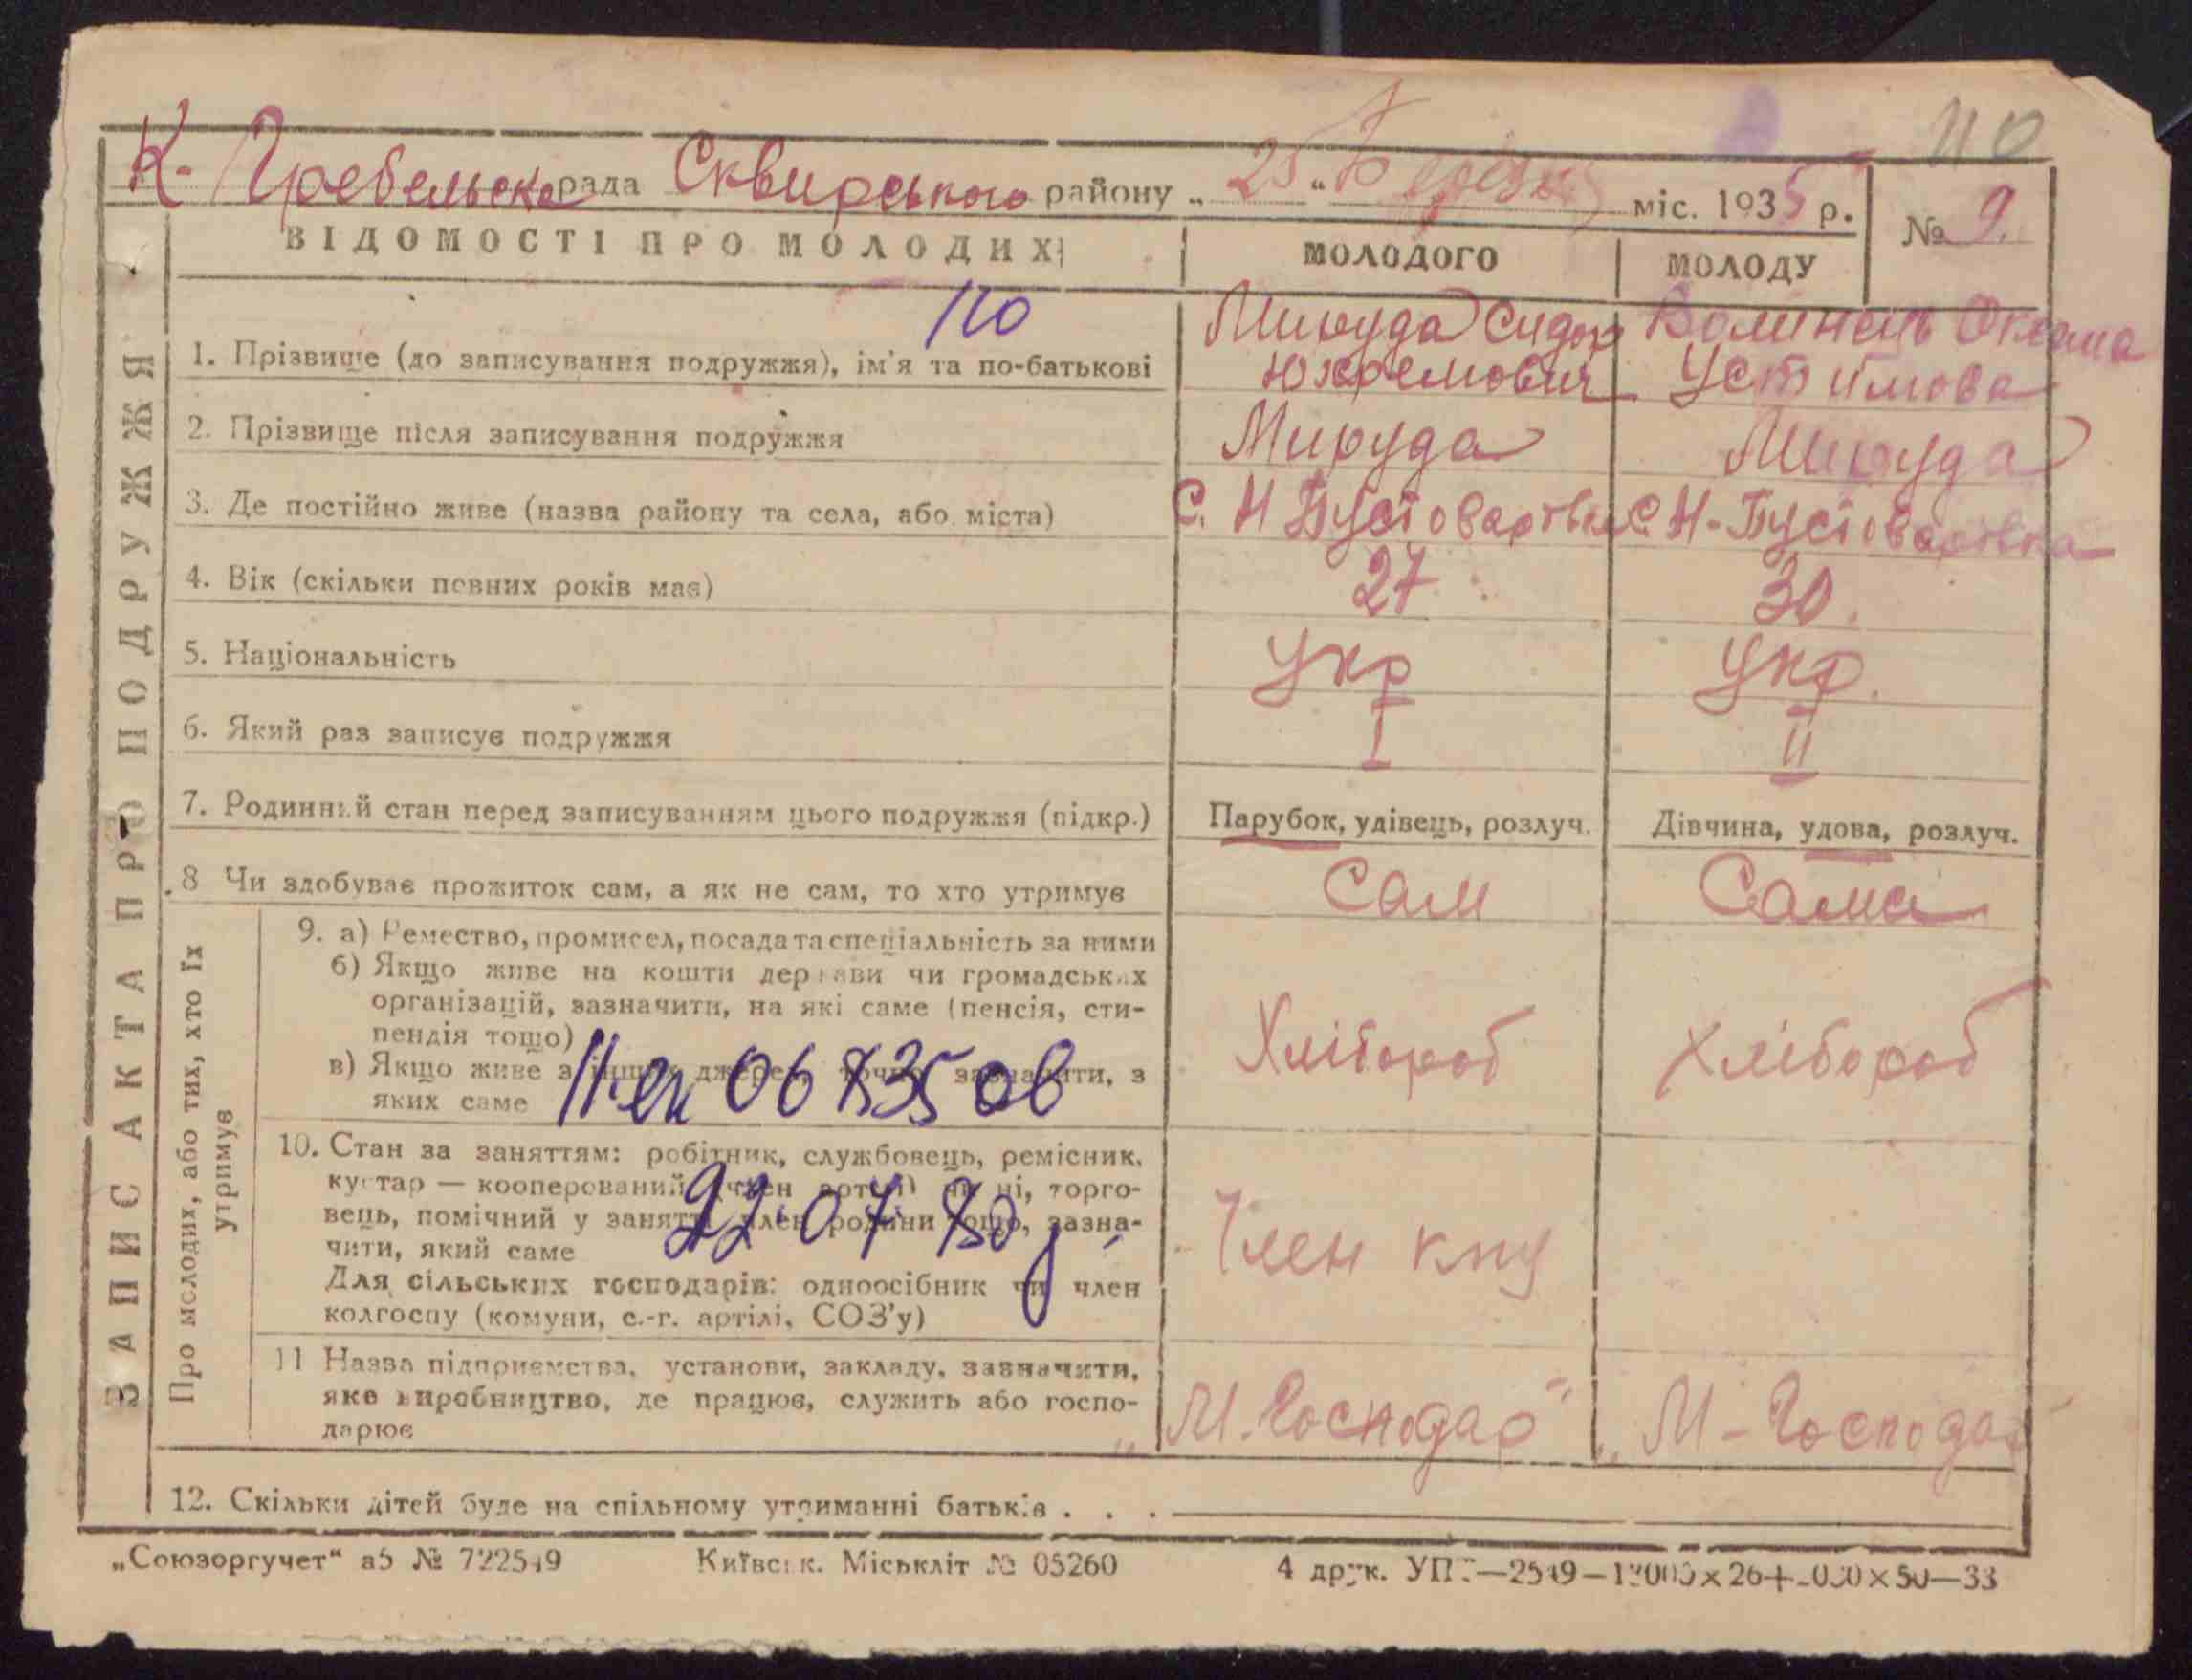 110
К. Гребельська рада Сквирського району „25" Березня міс. 1935 р. № 9.
ЗАПИС АКТА ПРО ПОДРУЖЖЯ
ВІДОМОСТІ ПРО МОЛОДИХ МОЛОДОГО МОЛОДУ
110
1. Прізвище (до записування подружжя), ім'я та по-батькові Мируда Сидор Юхремович Волинець Оксана Устимова
2. Прізвище після записування подружжя Мируда Мируда
3. Де постійно живе (назва району та села, або міста) С. Н Пустоварівка С Н-Пустоварівка
4. Вік (скільки повних років має) 27 30.
5. Національність Укр Укр.
6. Який раз записує подружжя I II
7. Родинний стан перед записуванням цього подружжя (підкр.) Парубок, удівець, розлуч. Дівчина, удова, розлуч.
8 Чи здобуває прожиток сам, а як не сам, то хто утримує Сам Сама
Про молодих, або тих, хто їх утримує
9. а) Ремество, промисел, посада та спеціальність за ними
б) Якщо живе на кошти держави чи громадських
організацій, зазначити, на які саме (пенсія, сти-
пендія тощо)
Хлібороб Хлібороб
в) Якщо живе з інших джерел, точно зазначити, з
яких саме
10. Стан за заняттям: робітник, службовець, ремісник,
кустар — кооперований (член артілі) чи ні, торго-
вець, помічний у занятті член родини тощо, зазна-
чити, який саме
22 07 80
Член
Для сільських господарів: одноосібник чи член
колгоспу (комуни, с.-г. артілі, СОЗ'у)
11 Назва підприємства, установи, закладу, зазначити,
яке виробництво, де працює, служить або госпо-
дарює
„М. Господар" „М-Господар"
12. Скільки дітей буде на спільному утриманні батьків . . .
„Союзоргучет" аб № 722549 Київськ. Міськліт № 05260 4 друк.